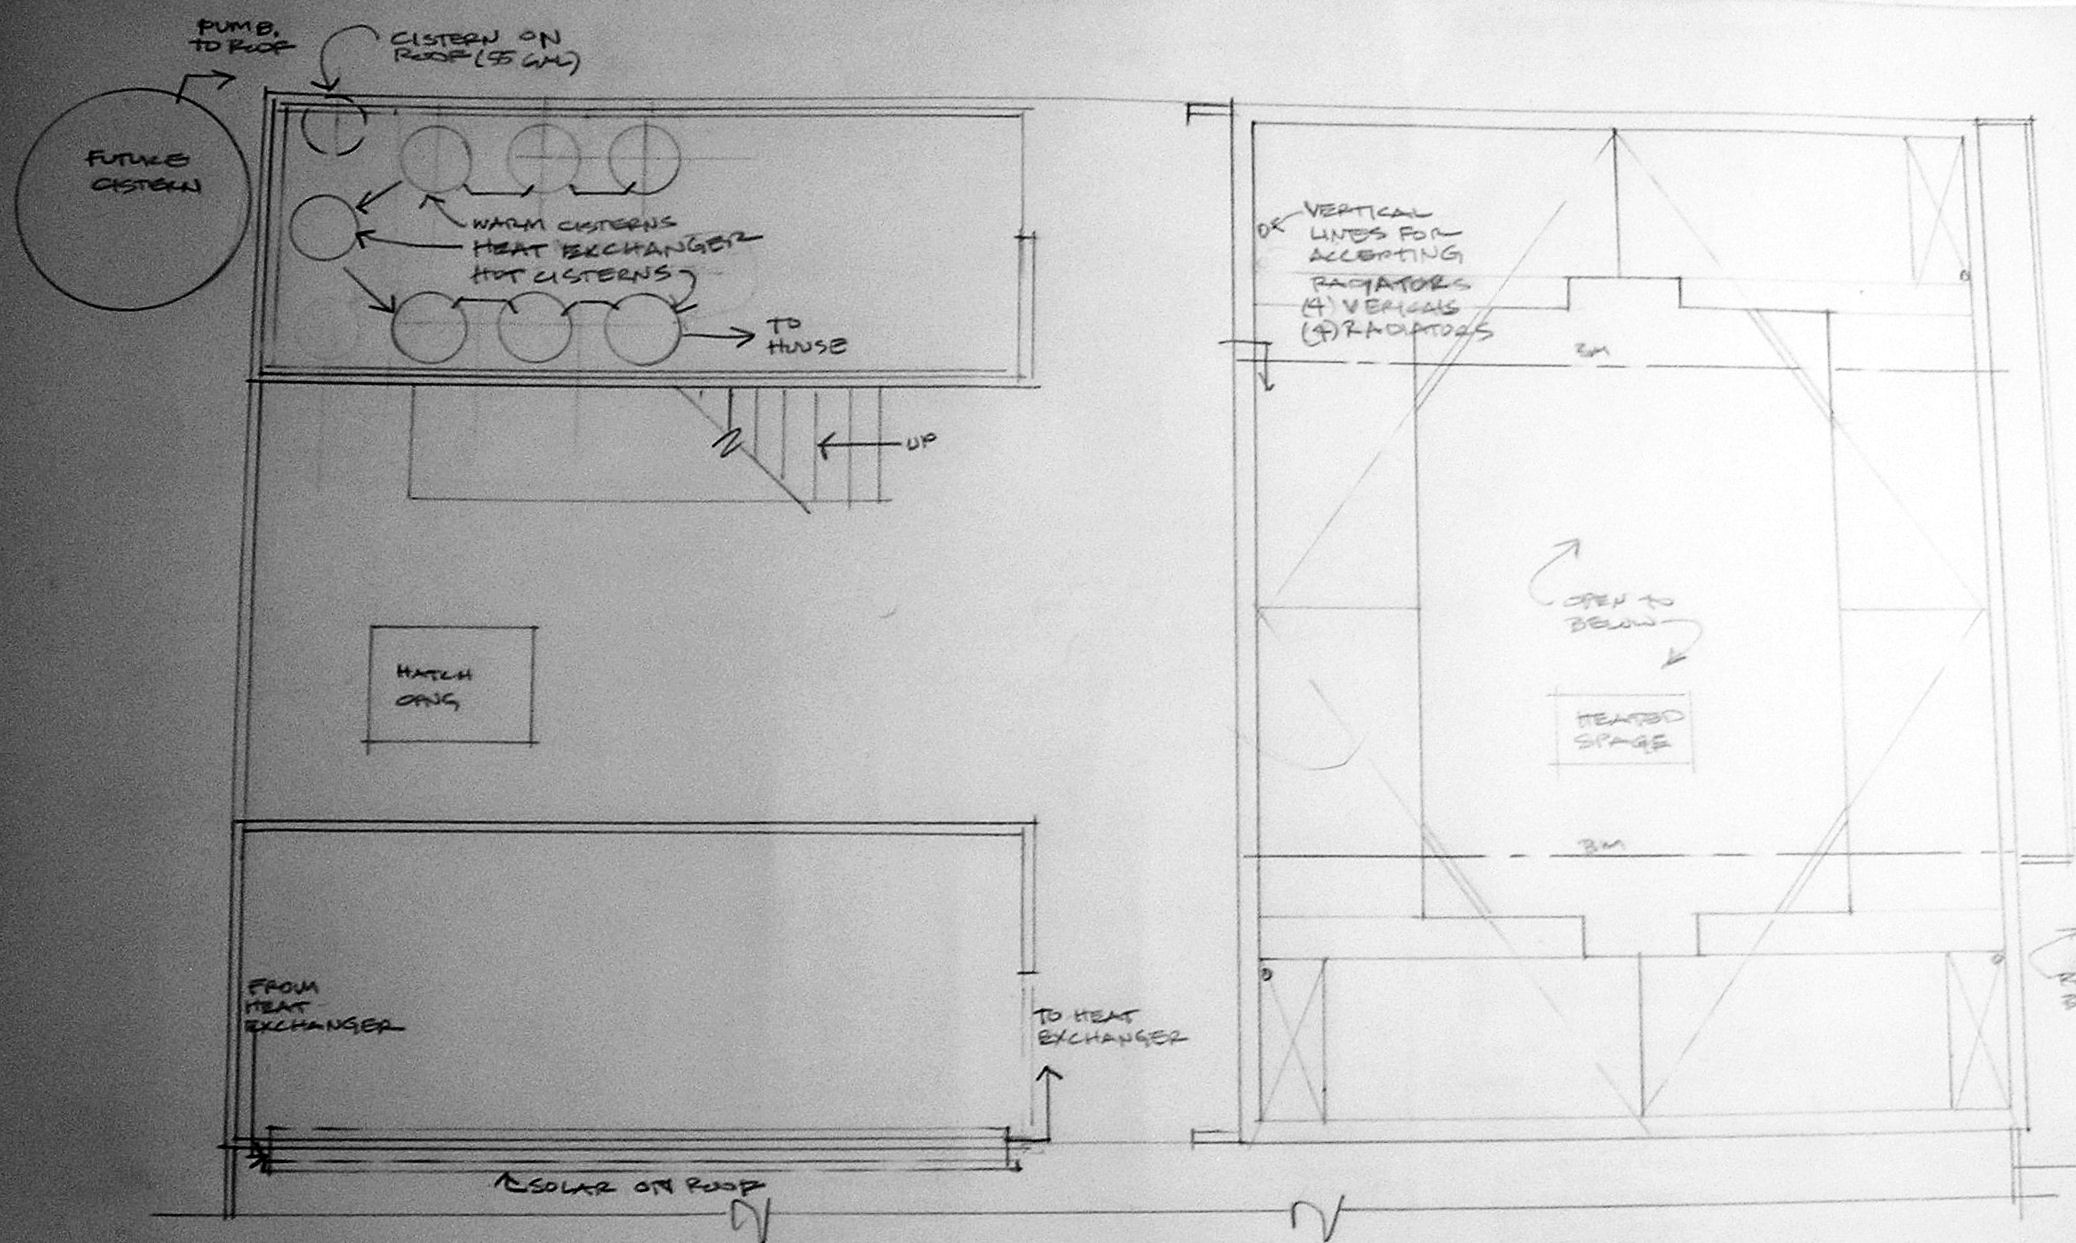 PUMP.
TO ROOF
CISTERN ON
ROOF (55 GAL)
FUTURE
CISTERN
WARM CISTERNS
HEAT EXCHANGER
HOT CISTERNS
TO
HOUSE
UP
HATCH
OPNG
FROM
HEAT
EXCHANGER
TO HEAT
EXCHANGER
SOLAR ON ROOF
VERTICAL
LINES FOR
ACCEPTING
RADIATORS
(4) VERTICALS
(4) RADIATORS
BM
OPEN TO
BELOW
HEATED
SPACE
BM